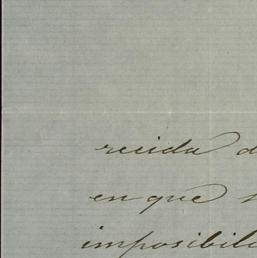 recida d
en que s
imposibili